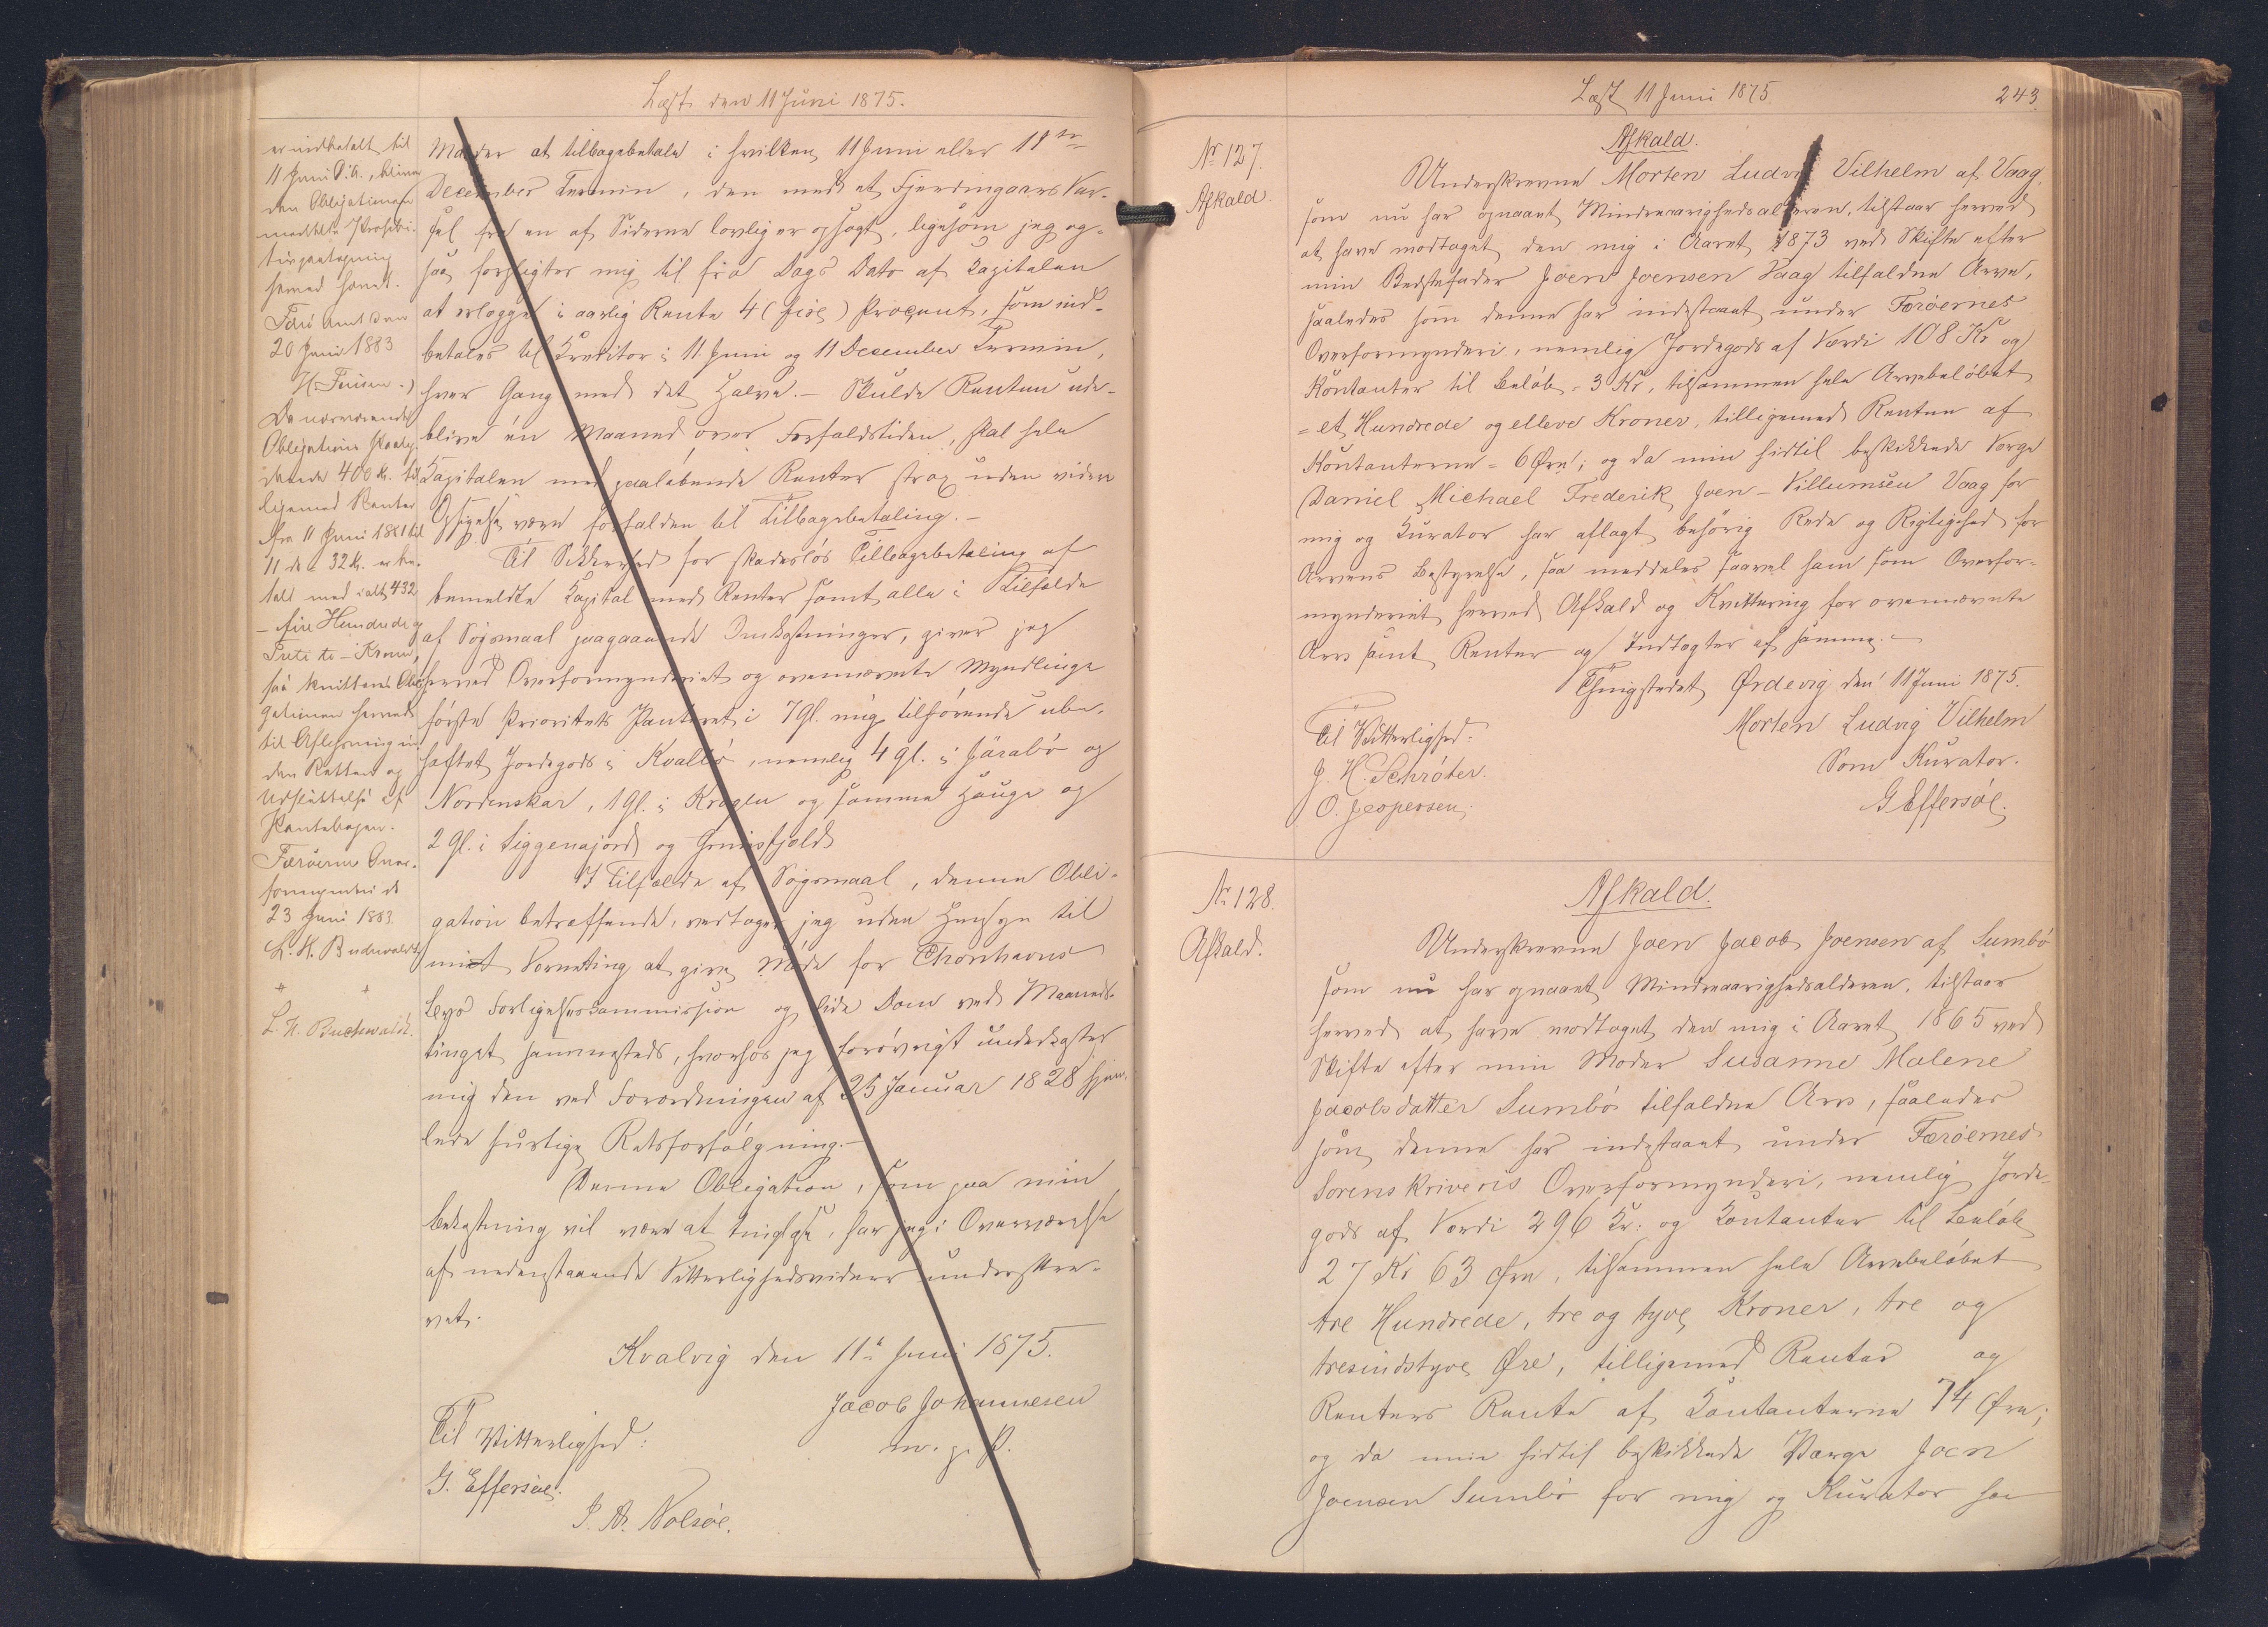 Læst den 11 Juni 1875.
er indbetalt til
11 Juni D.A.,
den Obligationen
meddelte Prohibi-
tivpaategning
hermed hævet.
Færø Amt den
20 Juni 1883
H. Finsen.)
Da nærværende
Obligations
400 Kr. til
ligemed Renter
fra 11 Juni 1881 til
11 ds. 32 Kr. er be-
talt med ialt 432
- fire Hundrede og
Treti to - Kroner,
saa kvitteres Obli-
gationen herved
til Aflysning in-
den Retten og
Udslettelse af
Pantebogen.
Færøernes Over-
formynderi d.
23 Juni 1883
L. H. Buchwaldt
L. H. Buchwaldt.
Møder at tilbagebetale i hvilken 11 Juni eller 11te
December Termin, den med et Fjerdingaars Var-
sel fra en af Siderne lovlig er opsagt, ligesom jeg og-
saa forpligter mig til fra Dags Dato af Kapitalen
at erlægge i aarlig Rente 4 (fire) Procent, som ind-
betales til Kreditor i 11. Juni og 11 December Termin,
hver Gang med det Halve. - Skulde Renten ude-
blive én Maaned over Forfaldstiden, skal hele
Kapitalen med paaløbende Renter strax uden videre
Opsigelse være forfalden til Tilbagebetaling. -
Til Sikkerhed for skadesløs Tilbagebetaling af
bemeldte Kapital med Renter samt alle i Tilfælde
af Søgsmaal paagaaende Omkostninger, giver jeg
herved Overformynderiet og ovennævnte Myndlinge
første Prioritets Panteret i 7 Gl. mig tilhørende ube-
hæftet Jordegods i Kvalbø, nemlig 4 gl. i Järabø og
Nordenskar, 1 Gl. i Krøglu og samme Hauge og
2 Gl. i Liggenajord og Grimsfjold
I Tilfælde af Søgsmaal, denne Obli-
gation betræffende, vedtager jeg uden Hensyn til
mit Værneting at give Møde for Thorshavns
Byes Forligelseskommission og lide Dom ved Maaneds-
tinget sammesteds, hvorhos jeg forøvrigt underkaster
mig den ved Forordningen af 25 Januar 1828 hjem-
lede hurtige Retsforfølgning. -
Denne Obligation, som paa min
Bekostning vil være at tinglyse, har jeg i Overværelse
af nedenstaaende Vitterlighedsvidner underskre-
vet.
Kvalvig den 11te Juni 1875.
Jacob Johannesen
m. p. P.
Til Vitterlighed:
G. Effersøe.
P. A. Nolsøe.
Læst 11 Juni 1875.
243
Nr 127.
Afkald.
Afkald.
Underskrevne Morten Ludvig Vilhelm af Vaag,
som nu har opnaaet Mindreaarighedsalderen, tilstaar herved
at have modtaget den mig i Aaret 1873 ved Skifte efter
min Bedstefader Joen Joensen Vaag tilfaldne Arve,
saaledes som denne har indestaaet under Færøernes
Overformynderi, nemlig Jordegods af Værdi 108 Kr og
Kontanter til Beløb - 3 Kr, tilsammen hele Arvebeløbet
= et Hundrede og elleve Kroner, tilligemed Renten af
Kontanterne = 6 Øre; og da min hidtil beskikkede Værge
Daniel Michael Frederik Joen-Villumsen Vaag for
mig og Kurator har aflagt behørig Rede og Rigtighed for
Arvens Bestyrelse, saa meddeles saavel ham som Overfor-
mynderiet herved Afkald og Kvittering for ovennævnte
Arv samt Renter og Indtægter af samme. -
Thingstedet Ørdevig den 11 Juni 1875.
Morten Ludvig Vilhelm
Til Vitterlighed:
Som Kurator.
J. H. Schrøter.
G Effersøe.
O. Jespersen.
Nr 128.
Afkald.
Afkald.
Underskrevne Joen Jacob Joensen af Sumbø
som nu har opnaaet Mindreaarighedsalderen, tilstaar
herved at have modtaget den mig i Aaret 1865 ved
Skifte efter min Moder Susanne Malene
Jacobsdatter Sumbø tilfaldne Arv, saaledes
som denne har indestaaet under Færøernes
Sorenskriveris Overformynderi, nemlig Jorde-
gods af Værdi 296 Kr. og Kontanter til Beløb
27 Kr 63 Øre, tilsammen hele Arvebeløbet
tre Hundrede, tre og tyve Kroner, tre og
tresindstyve Øre, tilligemed Renter og
Renters Rente af Kontanterne 74 Øre;
og da min hidtil beskikkede Værge Joen
Joensen Sumbø for mig og Kurator har